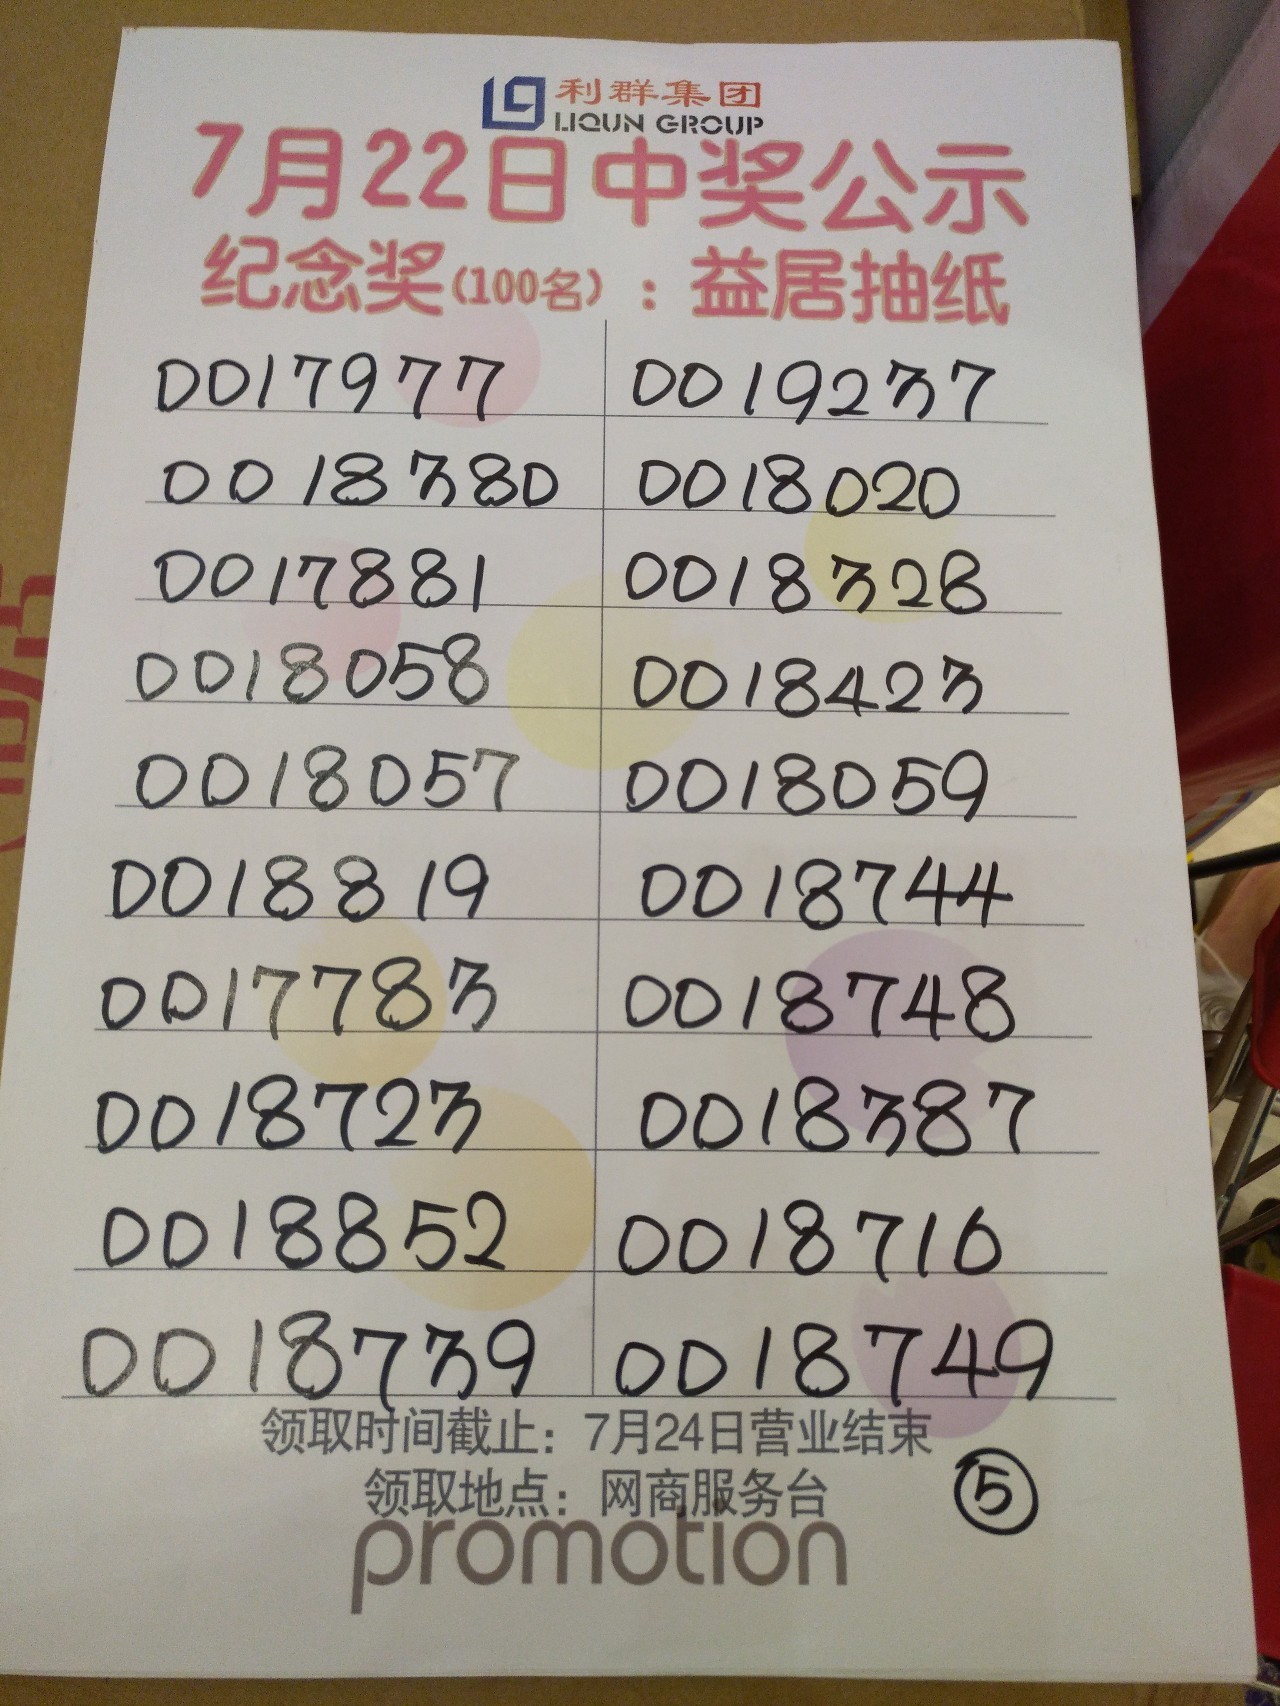 利群集团
LIQUN GROUP
7月22日中奖公示
纪念奖(100名)：益居抽纸
0017977 0019237
0018380 0018020
0017881 0018328
0018058 0018423
0018057 0018059
0018819 0018744
0017783 0018748
0018723 0018387
0018852 0018716
0018739 0018749
领取时间截止：7月24日营业结束
领取地点：网商服务台
⑤
promotion